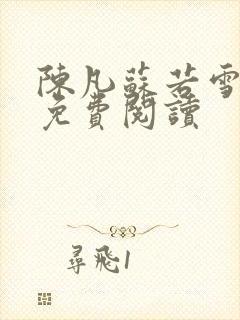 陳凡蘇若雪
免費閱讀
尋飛1